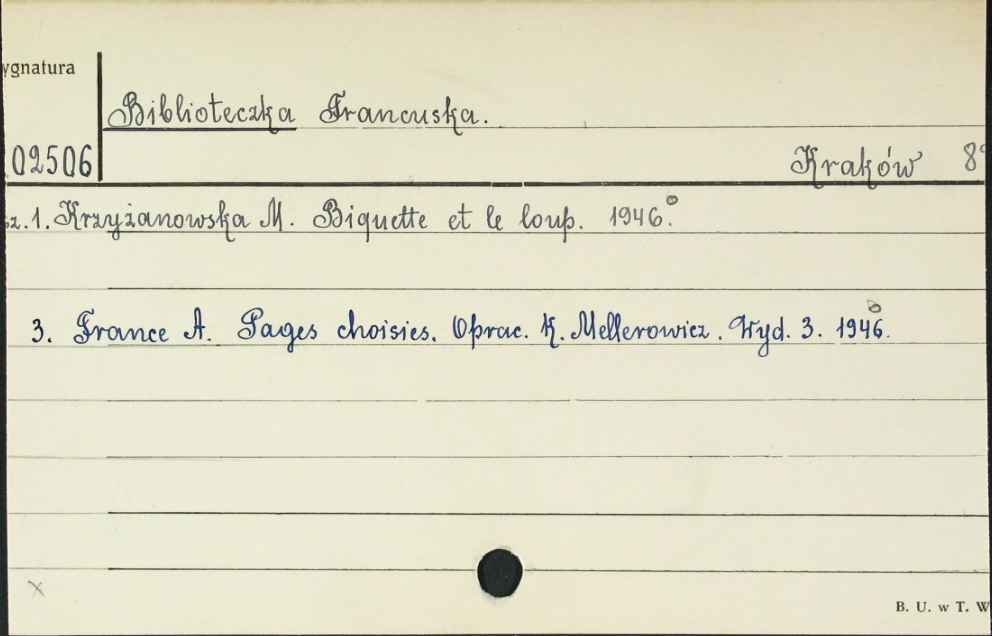 ygnatura
Biblioteczka Francuska.
02506 Kraków 8°
sz. 1. Krzyżanowska M. Biquette et le loup. 1946.
3. France A. Pages choisies. Oprac. K. Mellerowicz. Wyd. 3. 1946.
B. U. w T. W